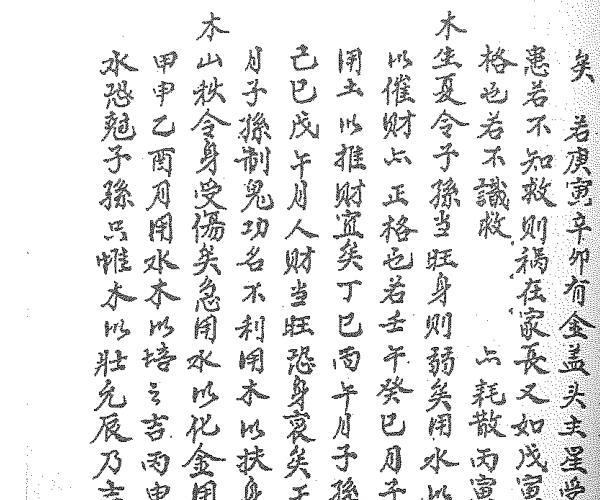 矣　若庚寅辛卯有金盖头主星
患若不知救则祸在家長又如戊寅
格也若不識救　亽耗散丙寅
木生夏令子孫当旺身则弱矣用水以
以催财亽正格也若壬午癸巳月子
用土以推财宜矣丁巳丙午月子孫
己巳戊午月人财当旺恐身衰矣
月子孫制鬼功名不利用木以扶身
木山秋令身受傷矣急用水以化金用
甲申乙酉月用水木以培之吉丙申
水恐尅子孫只惟木以壯允辰乃吉